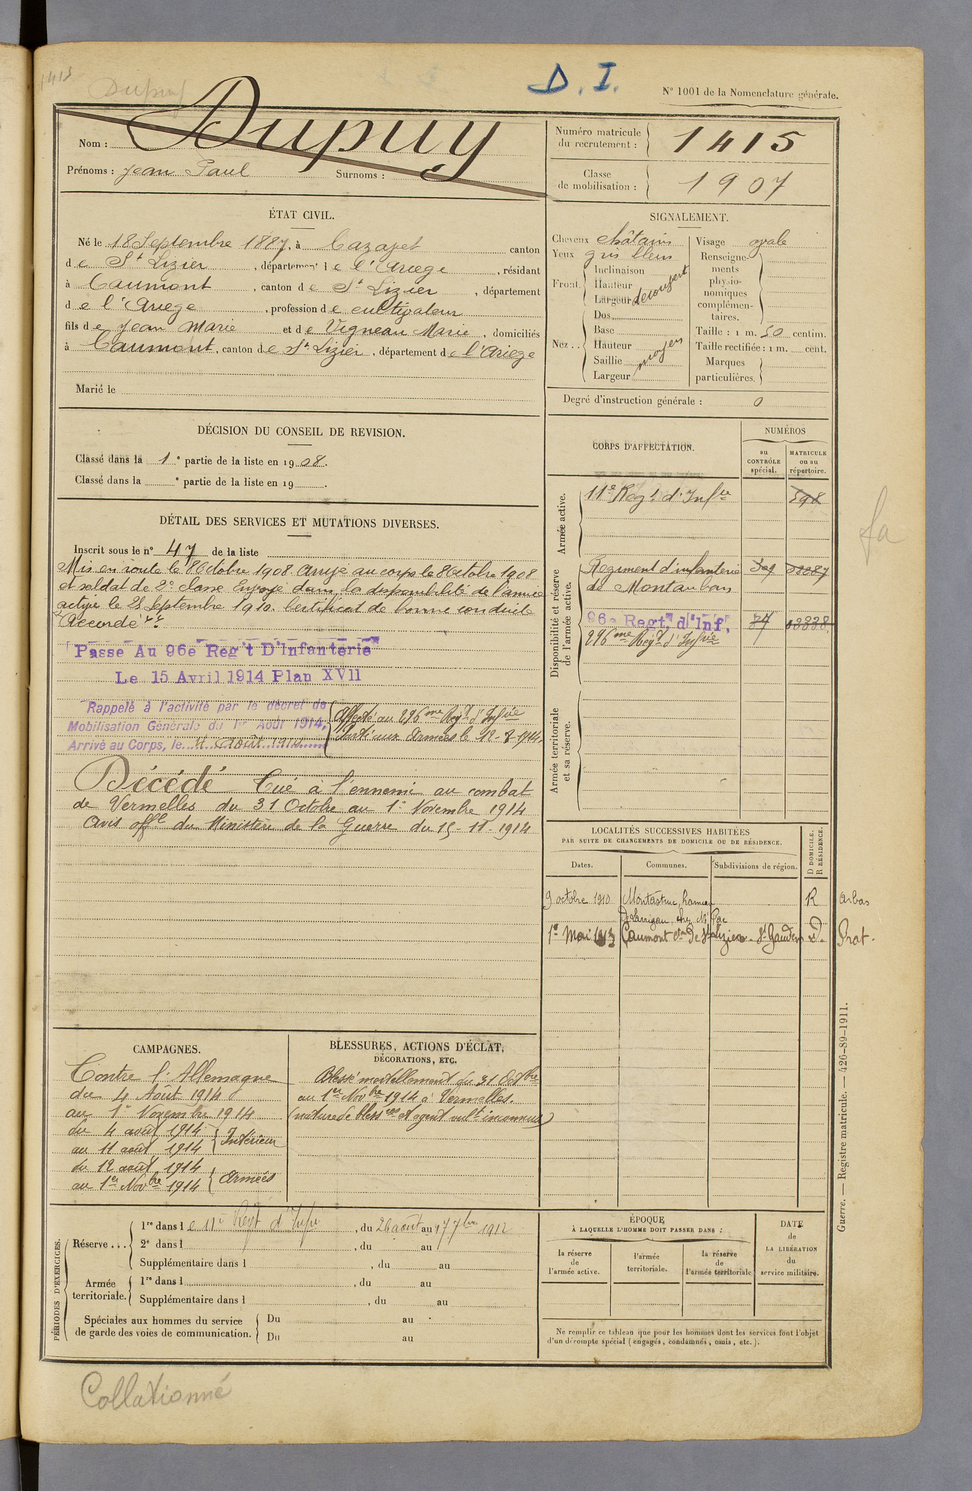 1415
Dupuy
D. I.
N° 1001 de la Nomenclature générale.
Nom : Dupuy
Prénoms : Jean Paul Surnoms :
Numéro matricule du recrutement : 1415
Classe de mobilisation : 1907
ÉTAT CIVIL.
Né le 18 Septembre 1887, à Cazazet canton
de St Lizier, département de l'Ariege, résidant
à Caumont, canton de St Lizier, département
de l'Ariege, profession de cultivateur
fils de Jean Marie et de Vigneau Marie, domiciliés
à Caumont, canton de St Lizier, département de l'Ariege
Marié le
SIGNALEMENT.
Cheveux châtains
Yeux gris bleus
Front Inclinaison
Hauteur
Largeur découvert
Nez Dos
Base
Hauteur
Saillie moyen
Largeur
Visage ovale
Renseignements physionomiques complémentaires.
Taille : 1 m. 50 centim.
Taille rectifiée : 1 m. cent.
Marques particulières.
Degré d'instruction générale : 0
DÉCISION DU CONSEIL DE REVISION.
Classé dans la 1e partie de la liste en 1908.
Classé dans la e partie de la liste en 19 .
DÉTAIL DES SERVICES ET MUTATIONS DIVERSES.
Inscrit sous le n° 47 de la liste
Mis en route le 8 Octobre 1908. Arrivé au corps le 8 Octobre 1908
et soldat de 2e classe. Envoyé dans la disponibilité de l'armée
active le 25 Septembre 1910. Certificat de bonne conduite
"Accordé"
Passe Au 96e Reg't D'Infanterie
Le 15 Avril 1914 Plan XVII
Rappelé à l'activité par le décret de
Mobilisation Générale du 1er Août 1914,
Arrivé au Corps, le 4 Août 1914
Affecté au 296me Regt d'Infrie
Parti aux Armées le 12-8-1914
Décédé Tué à l'ennemi au combat
de Vermelles du 31 Octobre au 1er Novembre 1914
Avis offel du Ministère de la Guerre du 15-11-1914
CORPS D'AFFECTATION.
NUMÉROS
au CONTRÔLE spécial.
MATRICULE ou au répertoire.
Armée active.
11e Regt d'Infie 398
Disponibilité et réserve de l'armée active.
Régiment d'infanterie
de Montauban
96e Regt, d'Inf,
296me Regt d'Infrie
Armée territoriale et sa réserve.
LOCALITÉS SUCCESSIVES HABITÉES
PAR SUITE DE CHANGEMENTS DE DOMICILE OU DE RÉSIDENCE.
D DOMICILE. R RÉSIDENCE.
Dates. Communes. Subdivisions de région.
9 octobre 1910 Montastruc R Arbas
1er Mai 1913 Caumont con de St Lizier St Gaudens D. Prat.
CAMPAGNES.
Contre l'Allemagne
du 4 Août 1914
au 1er Novembre 1914
du 4 août 1914
au 11 août 1914 Intérieur
du 12 août 1914
au 1er Novbre 1914 Armées
BLESSURES, ACTIONS D'ÉCLAT,
DÉCORATIONS, ETC.
Blessé mortellement du 31 Octbre
au 1er Novbre 1914 à Vermelles
(nature de blessure et agent vult inconnus)
PÉRIODES D'EXERCICES.
Réserve
1re dans le 11e Regt d'Infie, du 26 août au 17 7bre 1912
2e dans l , du au
Supplémentaire dans l , du au
Armée territoriale.
1re dans l , du au
Supplémentaire dans l , du au
Spéciales aux hommes du service
de garde des voies de communication.
Du au
Du au
ÉPOQUE
À LAQUELLE L'HOMME DOIT PASSER DANS :
la réserve de l'armée active.
l'armée territoriale.
la réserve de l'armée territoriale
DATE de LA LIBÉRATION du service militaire.
Ne remplir ce tableau que pour les hommes dont les services font l'objet
d'un décompte spécial (engagés, condamnés, omis, etc.).
Guerre. — Registre matricule. — 426-89-1911.
Collationné